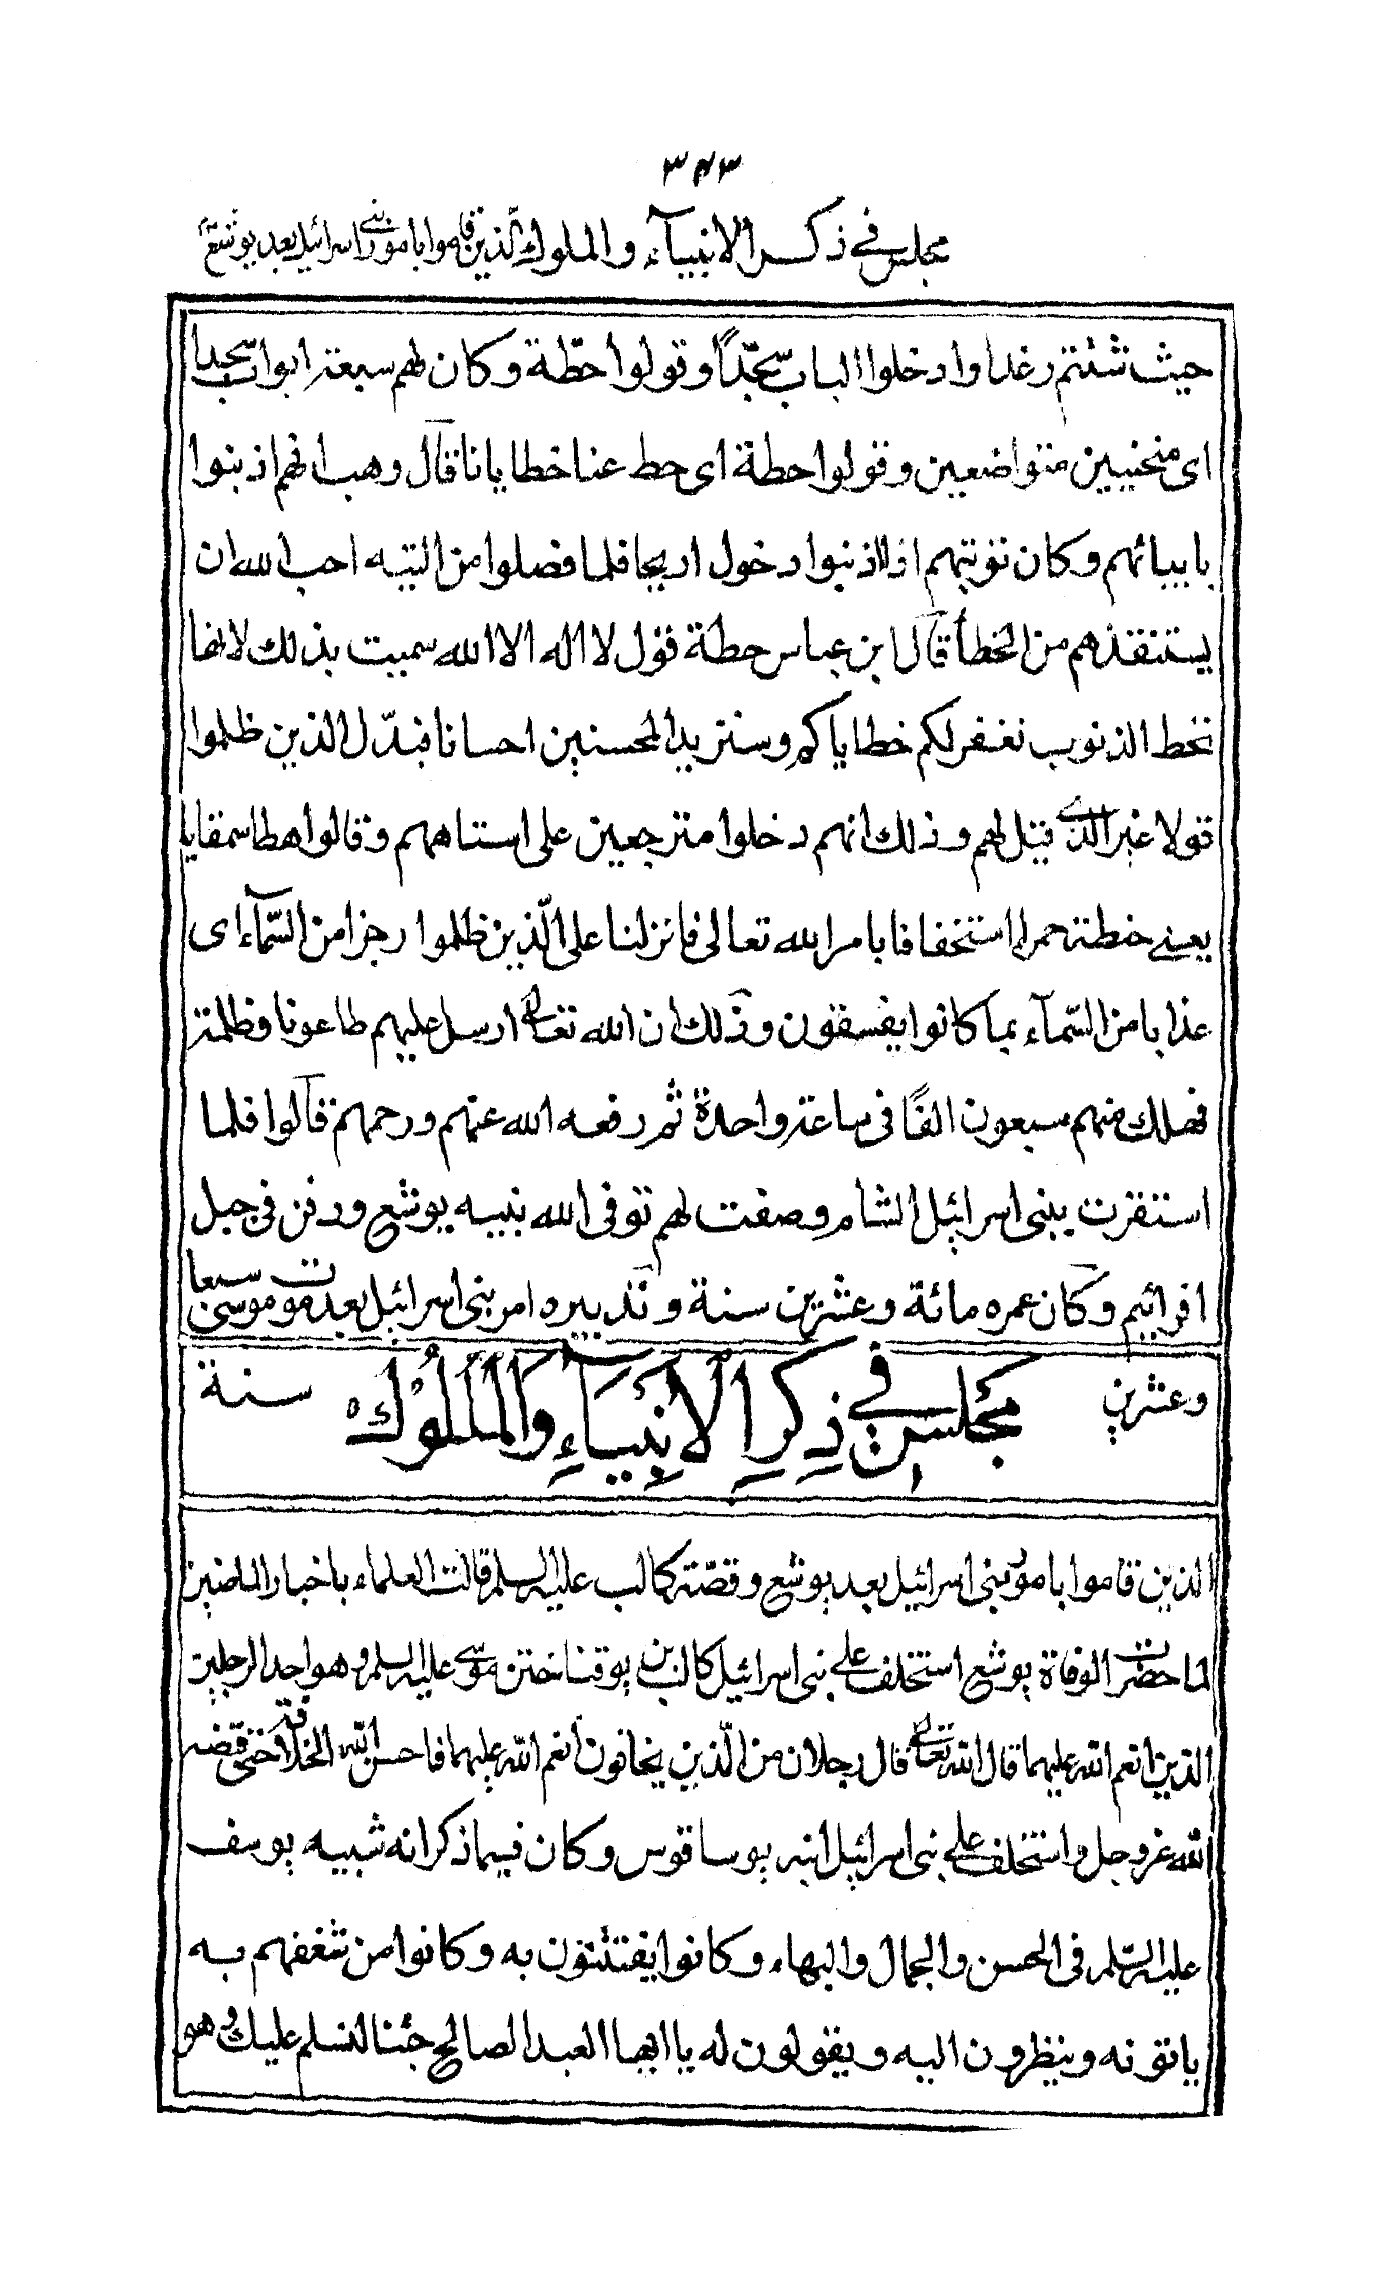 ٣٤٣
مجلس في ذكر الانبيآء والملوك الّذين قاموا بامور بني اسرائيل بعد يوشع
حيث شئتم رغدا وادخلوا الباب سجّدًا وقولوا حطّة وكان لهم سبعة ابواب سجدا
اى منحنيين متواضعين وقولوا حطة اى حط عنا خطايانا قال وهب انهم اذنبوا
بابيائهم وكان توبتهم اذا اذنبوا دخول اريحا فلما فصلوا من التيه احب الله ان
يستنقذهم من الخطأ قال ابن عباس حطة قول لا اله الا الله سميت بذلك لانها
تحط الذنوب نغفر لكم خطاياكم وسنزيد المحسنين احسانا فبدّل الذين ظلموا
قولا غير الذي قيل لهم وذلك انهم دخلوا متزحفين على استاههم وقالوا هطا سمقايا
يعني حنطة حمرا استخفافا بامر الله تعالى فانزلنا على الّذين ظلموا رجزا من السّمآء اى
عذابا من السّمآء بما كانوا يفسقون وذلك ان الله تعالى ارسل عليهم طاعونا وظلمة
فهلك منهم سبعون الفًا في ساعة واحدة ثم رفعه الله عنهم ورحمهم قالوا فلما
استقرت ببنى اسرائيل الشام وصفت لهم توفى الله نبيه يوشع ودفن في جبل
افرائيم وكان عمره مائة وعشرين سنة وتدبيره امر بنى اسرائيل بعد موت موسى سبعا
وعشرين مجلس في ذكر الانبيآء والملوك سنة
الذين قاموا بامور بنى اسرائيل بعد يوشع وقصّة كالب عليه السلم قالت العلماء باخبار الماضين
لما حضرت الوفاة يوشع استخلف على بنى اسرائيل كالب بن يوقنا ختن موسى عليه السلم وهو احد الرجلين
الذين انعم الله عليهما قال الله تعالى قال رجلان من الّذين يخافون أنعم الله عليهما فاحسن الله الخلافة حتى قبضه
الله عز وجل واستخلف على بنى اسرائيل ابنه يوساقوس وكان فيما ذكر انه شبيه يوسف
عليه السّلم فى الحسن والجمال والبهاء وكانوا يفتتنون به وكانوا من شغفهم به
ياتونه وينظرون اليه ويقولون له يا ايها العبد الصالح جئنا لنسلم عليك وهو